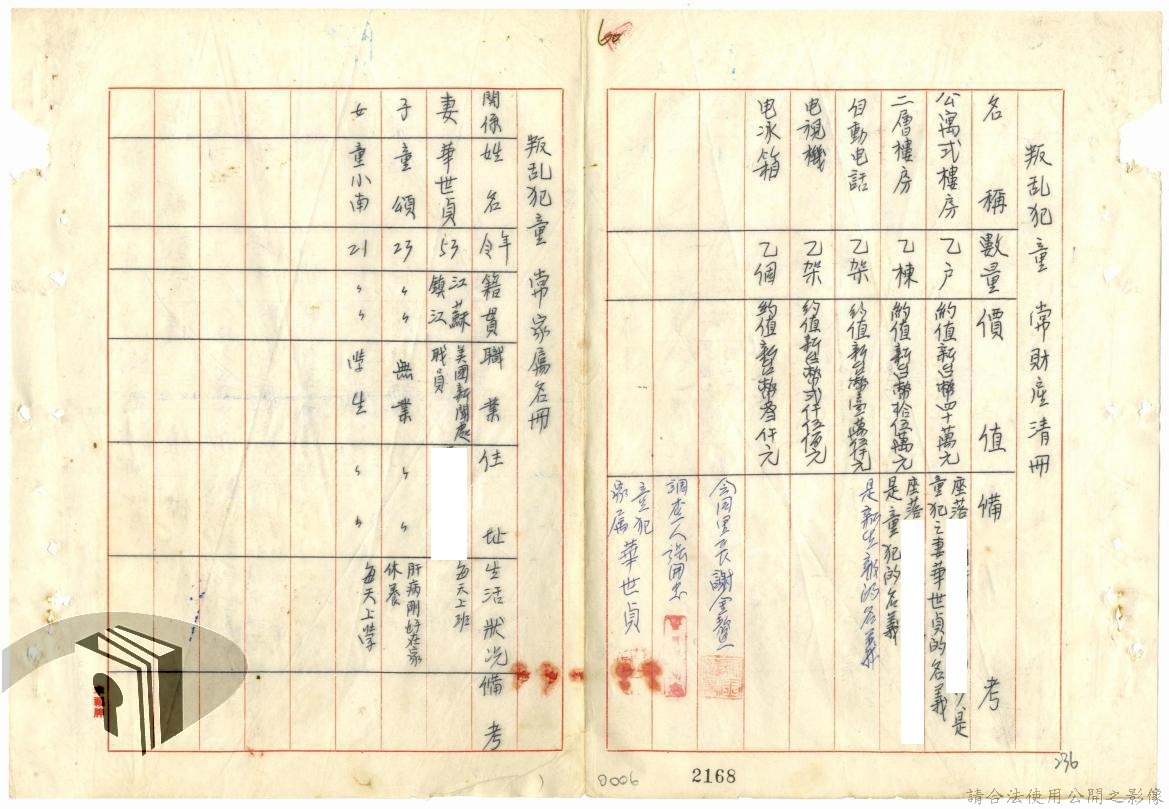 叛乱犯童　常財產清冊
名稱　數量　價值　備考
公寓式樓房　乙户　約值新台幣四十萬元　座落
是童犯之妻華世貞的名義
二層樓房　乙棟　約值新台幣拾伍萬元　座落
是童犯的名義
自動电話　乙架　約值新台幣壹萬伍仟元　是新生報的名義
电視機　乙架　約值新台幣弍仟伍佰元
电冰箱　乙個　約值新台幣叁仟元
會同里長謝金鰲
調查人
童犯家属華世貞
叛乱犯童　常家属名冊
関係　姓名　年令　籍貫　職業　住址　生活狀况　備考
妻　華世貞　53　江蘇鎮江　美國新聞處職員　每天上班
子　童頌　23　〃　〃　無業　〃　〃　肝病剛好在家休養
女　童小南　21　〃　〃　學生　〃　〃　每天上學
60
236
0006
2168
請合法使用公開之影像